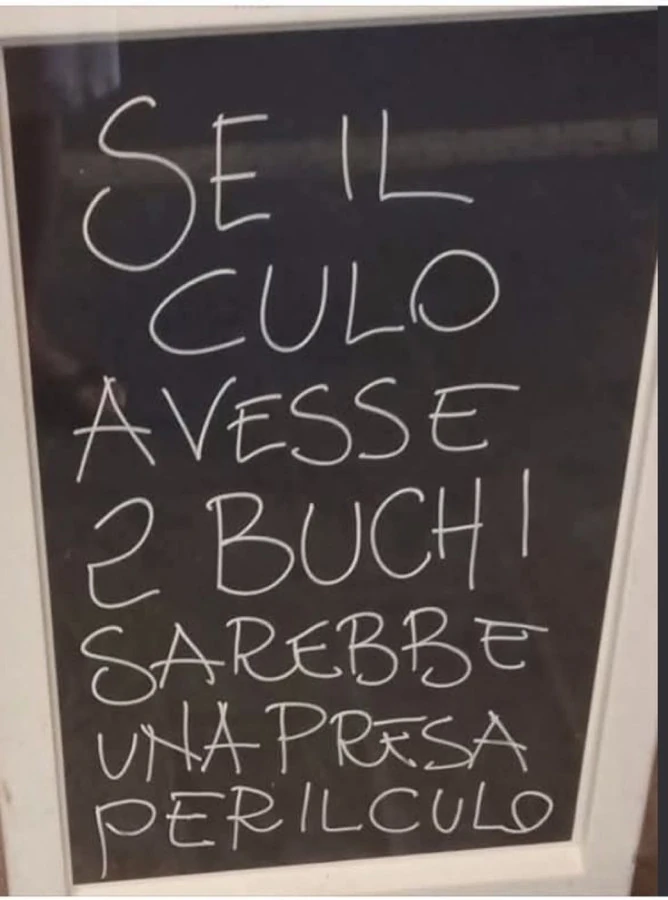 SE IL
CULO
AVESSE
2 BUCHI
SAREBBE
UNA PRESA
PER IL CULO